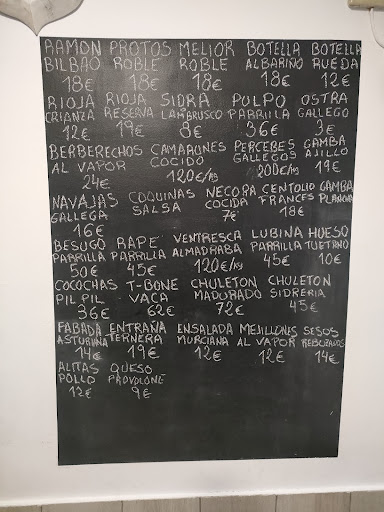 RAMON PROTOS MELIOR BOTELLA BOTELLA
BILBAO ROBLE ROBLE ALBARIÑO RUEDA
18€ 18€ 18€ 18€ 12€
RIOJA RIOJA SIDRA PULPO OSTRA
CRIANZA RESERVA LAMBRUSCO PARRILLA GALLEGO
12€ 19€ 8€ 36€ 3€
BERBERECHOS CAMARONES PERCEBES GAMBA
AL VAPOR COCIDO GALLEGOS AJILLO
24€ 120€/kg 200€/kg 19€
NAVAJAS COQUINAS NECORA CENTOLLO GAMBA
GALLEGA SALSA COCIDA FRANCES PLANCHA
16€ 7€ 18€
BESUGO RAPE VENTRESCA LUBINA HUESO
PARRILLA PARRILLA ALMADRABA PARRILLA TUETANO
50€ 45€ 120€/kg 45€ 10€
COCOCHAS T-BONE CHULETON CHULETON
PIL PIL VACA MADURADO SIDRERIA
36€ 62€ 72€ 45€
FABADA ENTRAÑA ENSALADA MEJILLONES SESOS
ASTURIANA TERNERA MURCIANA AL VAPOR REBOZADOS
14€ 19€ 12€ 12€ 14€
ALITAS QUESO
POLLO PROVOLONE
12€ 9€